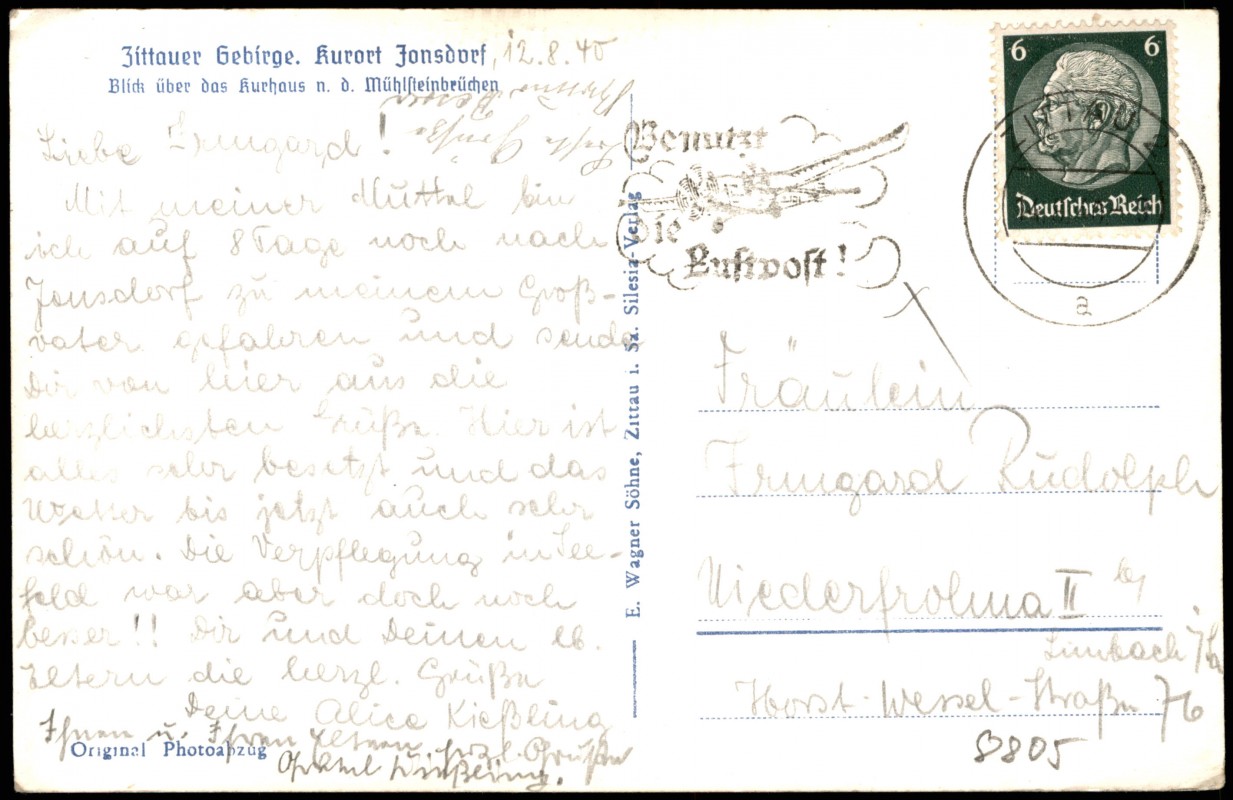 Zittauer Gebirge. Kurort Jonsdorf, 12.8.40
Blick über das Kurhaus n. d. Mühlsteinbrüchen
Liebe Irmgard!
Mit meiner Muttel bin
ich auf 8 Tage noch nach
Jonsdorf zu meinem Groß-
vater gefahren und sende
Dir von hier aus die
herzlichsten Grüße. Hier ist
alles sehr besetzt und das
Wetter bis jetzt auch sehr
schön. Die Verpflegung in See-
feld war aber doch noch
besser!! Dir und Deinen lb.
Eltern die herzl. Grüße
Deine Alice Kießling
Ihnen u. Ihren Eltern herzl. Grüße
Kießling.
Original Photoabzug
Grüße
E. Wagner Söhne, Zittau i. Sa. Silesia-Verlag
Benutzt
die
Luftpost!
6 6
Deutsches Reich
ZITTAU
a
Fräulein
Irmgard Rudolph
Niederfrohna II b/
Limbach i/Sa
Horst-Wessel-Straße 76
8805